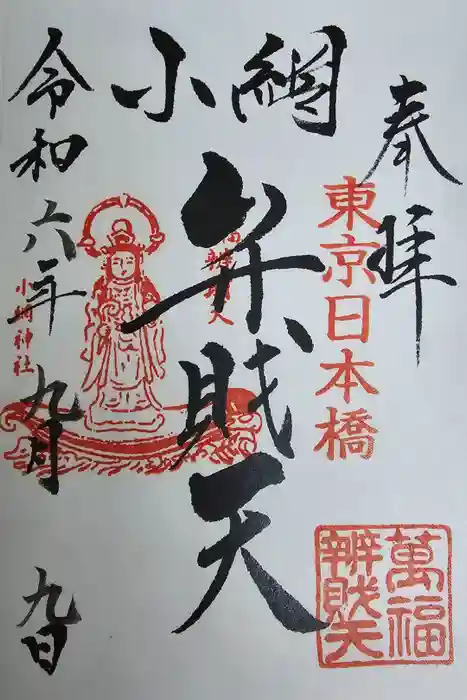 奉拝
東京日本橋
小網
弁財天
萬福
辨財天
小網神社
令和六年九月九日